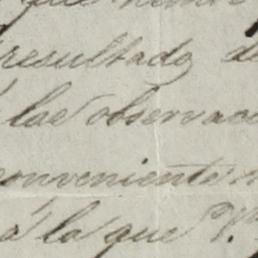 que
resultado de
las observac
conveniente
á la que V.